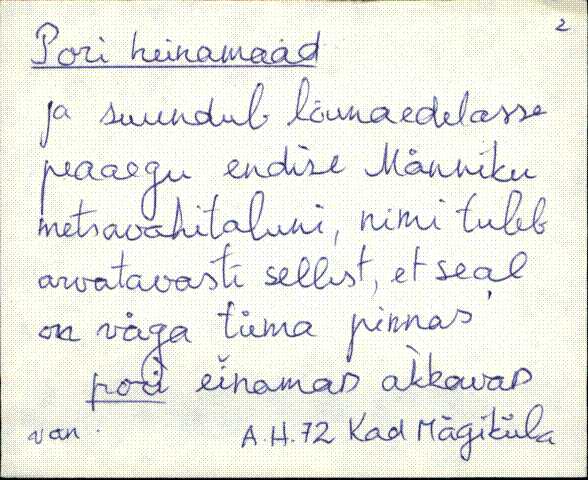 2
Pori heinamaad
ja suundub lõunaedelasse
peaaegu endise Männiku
metsavahitaluni, nimi tuleb
arvatavasti sellest, et seal
on väga tüma pinnas
pori einamas akkavas
van.
A.H.72 Kad Mägiküla